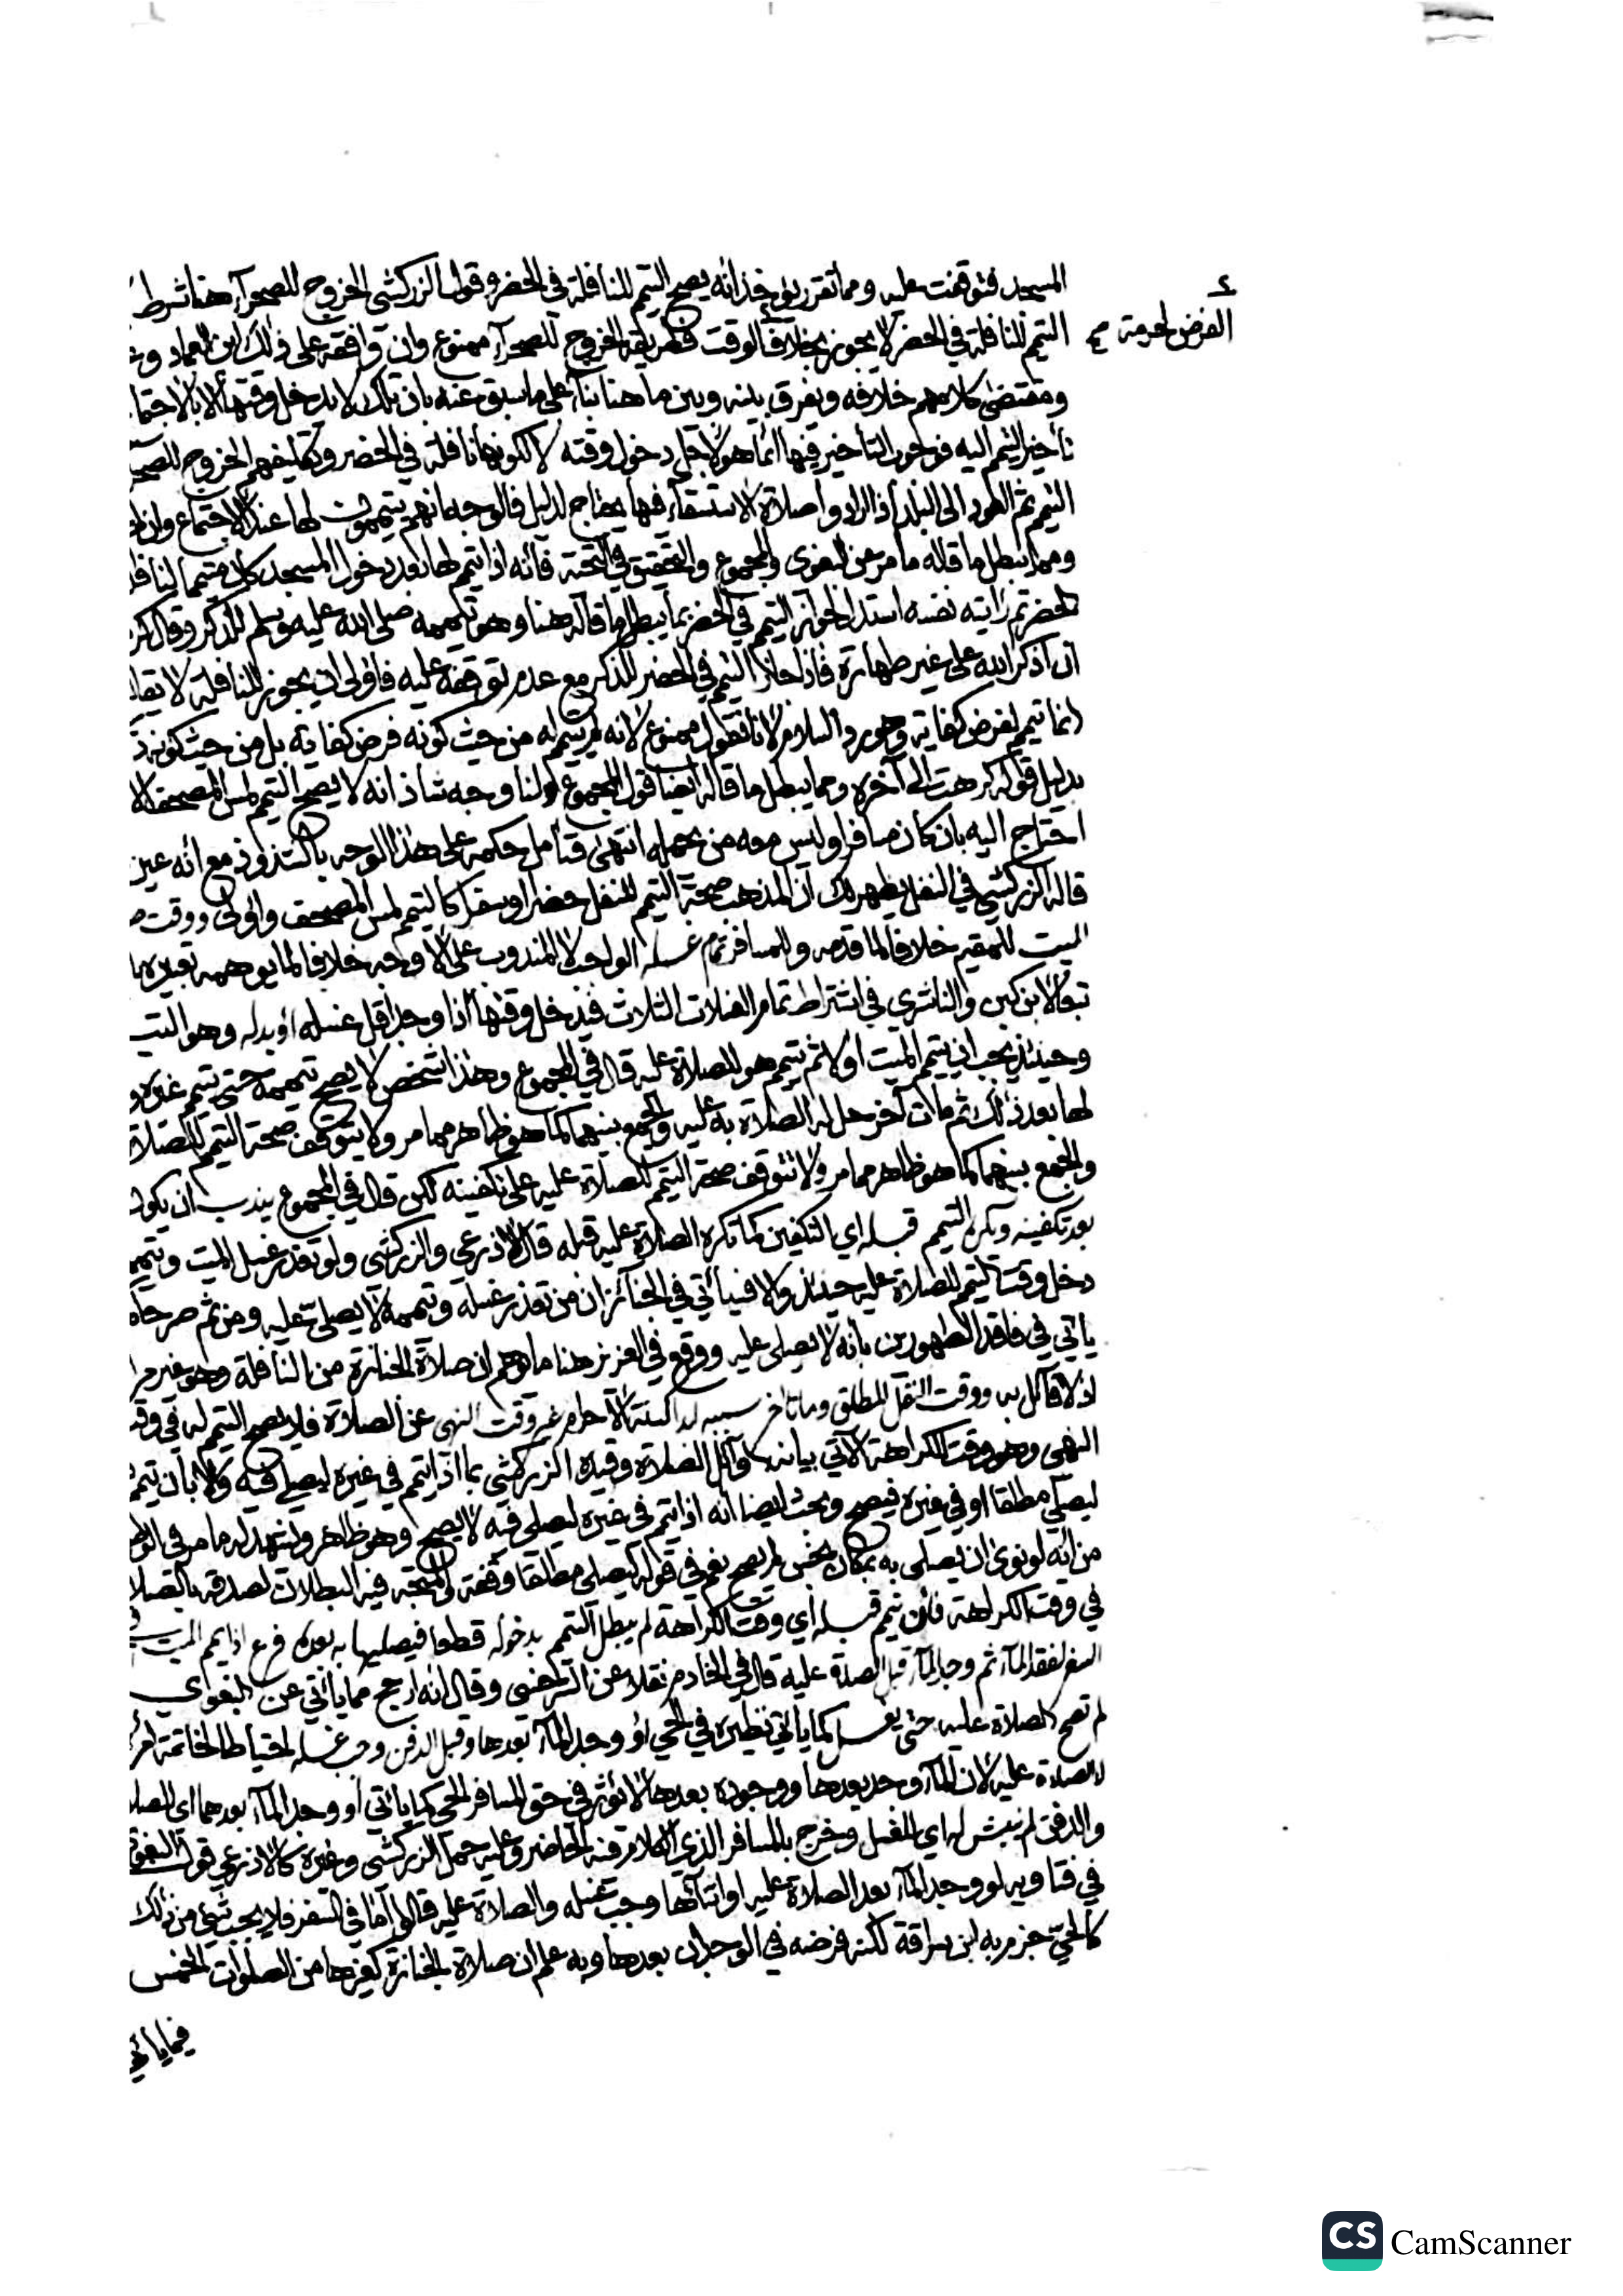 المسجد فتوقفت عليه ومما تقرر يؤخذ انه يصح التيمم للنافلة في الحضر وقول الزركشي الخروج للصحرآء هنا شرط
الفرض لحرمة صح
التيمم للنافلة في الحضر لا يجوز بخلاف الوقت فطريقه الخروج للصحرآء ممنوع وان وافقه على ذلك ابن العماد
ومقتضى كلامهم خلافه ويفرق بينه وبين ما هنا بنآء على ما سبق عنه بان تلك لا يدخل وقتها الا بالاجتما
تأخير التيمم اليه فوجوب التأخير فيها انما هو لاجل دخول وقته لا لكونها نافلة في الحضر وتكليفهم الخروج للصح
التيمم ثم العود الى البلد اذا ارادوا صلاة الاستسقاء فيها يحتاج لدليل فالوجه انهم يتيممون لها عند الاجتماع وان
ومما يبطل ما قاله ما مر عن البغوى والمجموع والتحقيق في التحية فانه اذا تيمم لها بعد دخول المسجد كان متيمما لنافلة
الحضر ثم رايته نفسه استدل لجواز التيمم في الحضر بما يبطل ما قاله هنا وهو تيممه صلى الله عليه وسلم للذكر وقال كر
ان اذكر الله على غير طهارة فاذا جاز التيمم في الحضر للذكر مع عدم توقفه عليه فاولى ان يجوز للنافلة لا يقا
انما تيمم لفرض كفاية وهو رد السلام لانا نقول ممنوع لانه لم يتيمم له من حيث كونه فرض كفاية بل من حيث كونه ذ
بدليل قوله كرهت الى آخره ومما يبطل ما قاله ايضا قول المجموع ولنا وجه شاذ انه لا يصح التيمم لمس المصحف الا
احتاج اليه بان كان مسافرا وليس معه من يحمله انتهى فتأمل حكمه على هذا الوجه بالشذوذ مع انه عين
قاله الزركشي في النفل يظهر لك ان المذهب صحة التيمم للنفل حضرا وسفرا كالتيمم لمس المصحف واولى ووقت ص
الميت للمقيم خلافا لما قدمه وللمسافر تمام غسله الواجب لا المندوب على الاوجه خلافا لما يوهمه تعبيره
تبعا لابن كبن والناشري في اشتراط تمام الغسلات الثلاث فيدخل وقتها اذا وجد اقل غسله او بدله وهو التي
وحينئذ يجب ان ييمم الميت اولا ثم يتيمم هو للصلاة عليه قال في المجموع وهذا شخص لا يصح تيممه حتى ييمم غيره و
لها بعد ذلك ثم مات آخر حل له الصلاة به عليه والجمع بينهما كما هو ظاهر مما مر ولا يتوقف صحة التيمم للصلاة
والجمع بينهما كما هو ظاهر مما مر ولا تتوقف صحة التيمم للصلاة عليه على تكفينه لكن قال في المجموع يندب ان يكون
بعد تكفينه ويكره التيمم قبله اي التكفين كما تكره الصلاة عليه قبله قال الاذرعي والزركشي ولو تعذر غسل الميت وتيممه
دخل وقت التيمم للصلاة عليه حينئذ والا فسيأتي في الجنائز ان من تعذر غسله وتيممه لا يصلى عليه ومن ثم صرحا
ياتي في فاقد الطهورين بأنه لا يصلى عليه ووقع في العزيز هنا ما يوهم ان صلاة الجنازة من النافلة وهو غير مر
اذ لا قائل به ووقت النفل المطلق وما تاخر سببه كسنة الاحرام غير وقت النهي عن الصلاة فلا يصح التيمم له في وقت
النهي وهو وقت الكراهة الآتي بيانه اوآئل الصلاة وقيده الزركشي بما اذا تيمم في غيره ليصلي فيه والا بان تيمم
ليصلي مطلقا او في غيره فيصح وبحث ايضا انه اذا تيمم في غيره ليصلي فيه لا يصح وهو ظاهر ويشهد له ما مر في الوض
من انه لو نوى ان يصلى به بمكان نجس لم يصح نعم في قوله ليصلى مطلقا وقفة والمتجه فيه البطلان لصدقه بالصلا
في وقت الكراهة فان تيمم قبله اي وقت الكراهة لم يبطل التيمم بدخوله قطعا فيصليها به بعده فرع اذا يمم الميت في
السفر لفقد المآء ثم وجد المآء قبل الصلاة عليه قال في الخادم نقلا عن وقال انه ارجح مما ياتي عن البغوي
لم تصح الصلاة عليه حتى يغسل كما ياتي نظيره في الحي او وجد المآء بعدها وقبل الدفن وجب غسله احتياطا لخاتمة امر
لا الصلاة عليه لان المآء وجد بعدها ووجوده بعدها لا يؤثر في حق المسافر الحي كما ياتي او وجد المآء بعدهما اى الصلا
والدفن لم ينبش له اي للغسل وخرج بالمسافر الذي الكلام فيه الحاضر وعليه حمل الزركشي وغيره كالاذرعي قول البغوي
في فتاويه لو وجد المآء بعد الصلاة عليه او اثنآئها وجب غسله والصلاة عليه قالوا اما في السفر فلا يجب شئ من ذلك
كالحي جزم به ابن سراقة لكنه فرضه في الوجدان بعدها وبه علم ان صلاة الجنازة كغيرها من الصلوات الخمس
فيما ياتي
CS CamScanner